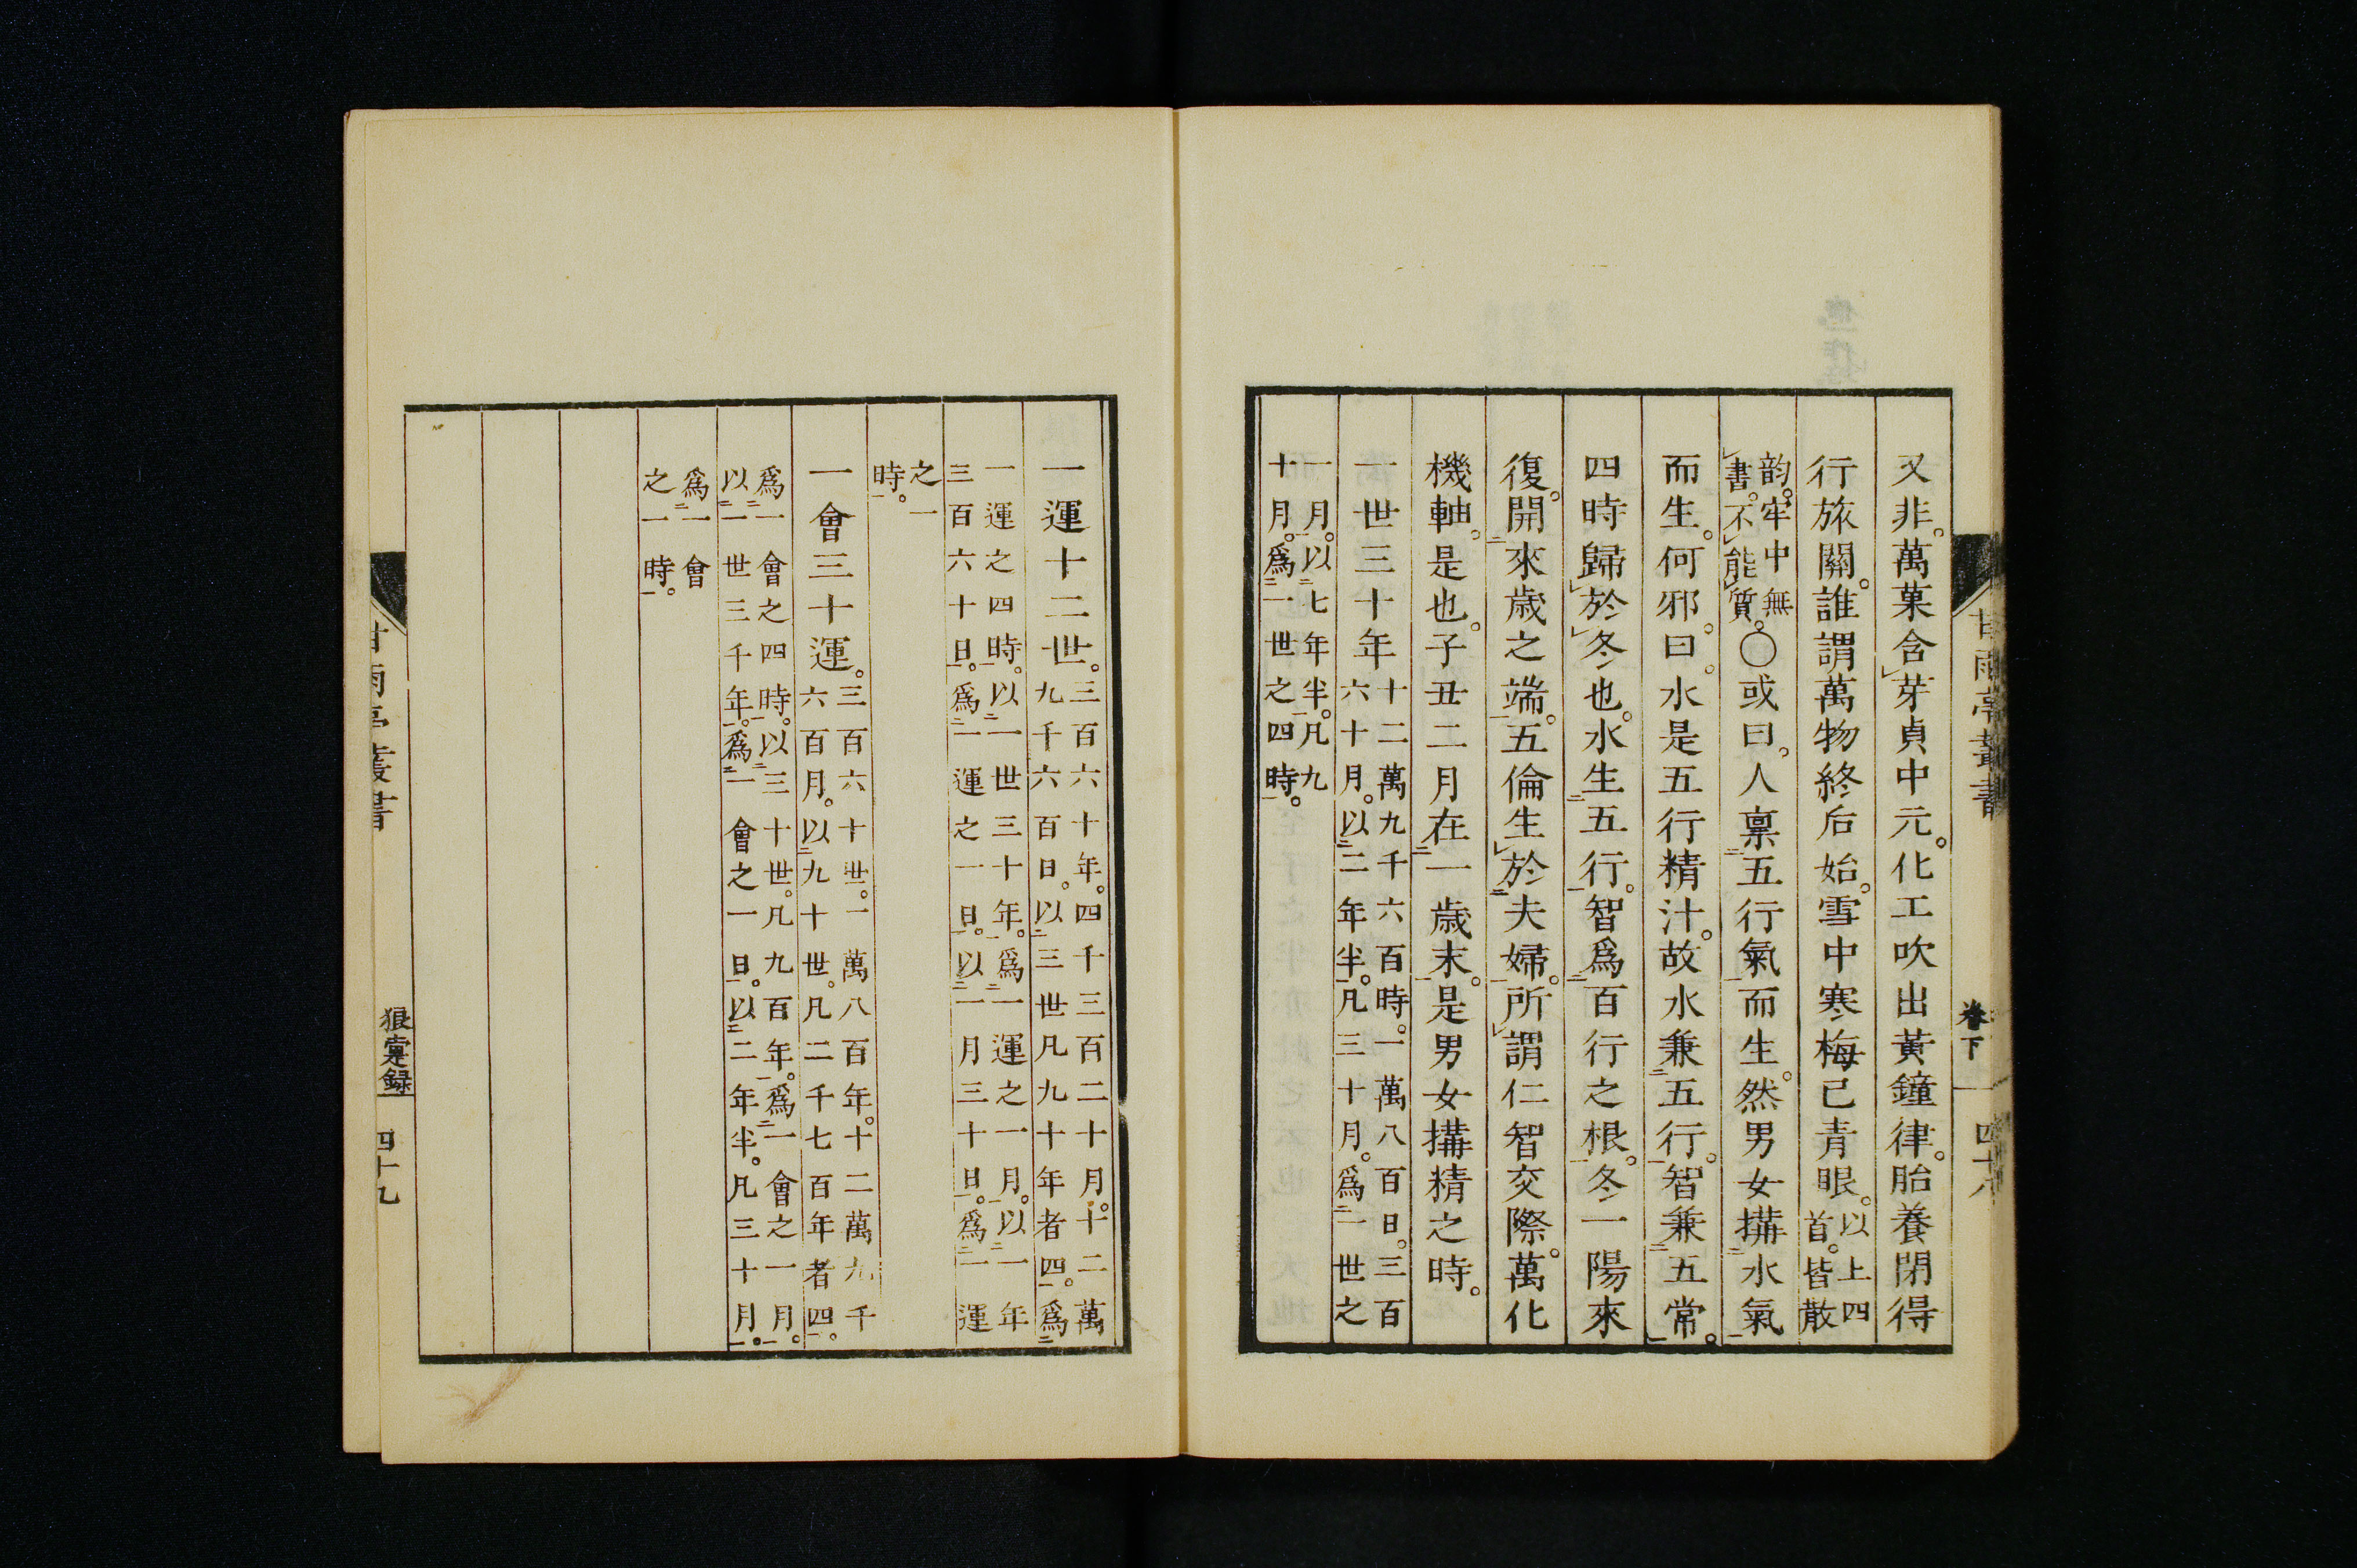 又非。萬菓含芽貞中元。化工吹出黃鐘律。胎養閉得
行旅關。誰謂萬物終后始。雪中寒梅已青眼。以上四首。皆散
韵。牢中無書。不能質。○或曰。人禀五行氣而生。然男女搆水氣
而生。何邪。曰。水是五行精汁。故水兼五行。智兼五常。
四時歸於冬也。水生五行。智爲百行之根。冬一陽來
復。開來歲之端。五倫生於夫婦。所謂仁智交際。萬化
機軸。是也。子丑二月在一歲末。是男女搆精之時。
一世三十年十二萬九千六百時。一萬八百日。三百
六十月。以二年半。凡三十月。爲一世之
一月。以七年半。凡九
十月。爲一世之四時。
卷下
四十八
一運十二世。三百六十年。四千三百二十月。十二萬
九千六百日。以三世凡九十年者四。爲
一運之四時。以一世三十年。爲一運之一月。以一年
三百六十日。爲一運之一日。以一月三十日。爲一運
之一
時。
一會三十運。三百六十世。一萬八百年。十二萬九千
六百月。以九十世。凡二千七百年者四。
爲一會之四時。以三十世。凡九百年。爲一會之一月。
以一世三千年。爲一會之一日。以二年半。凡三十月。
爲一會
之一時。
甘雨亭叢書
狼疐録
四十九